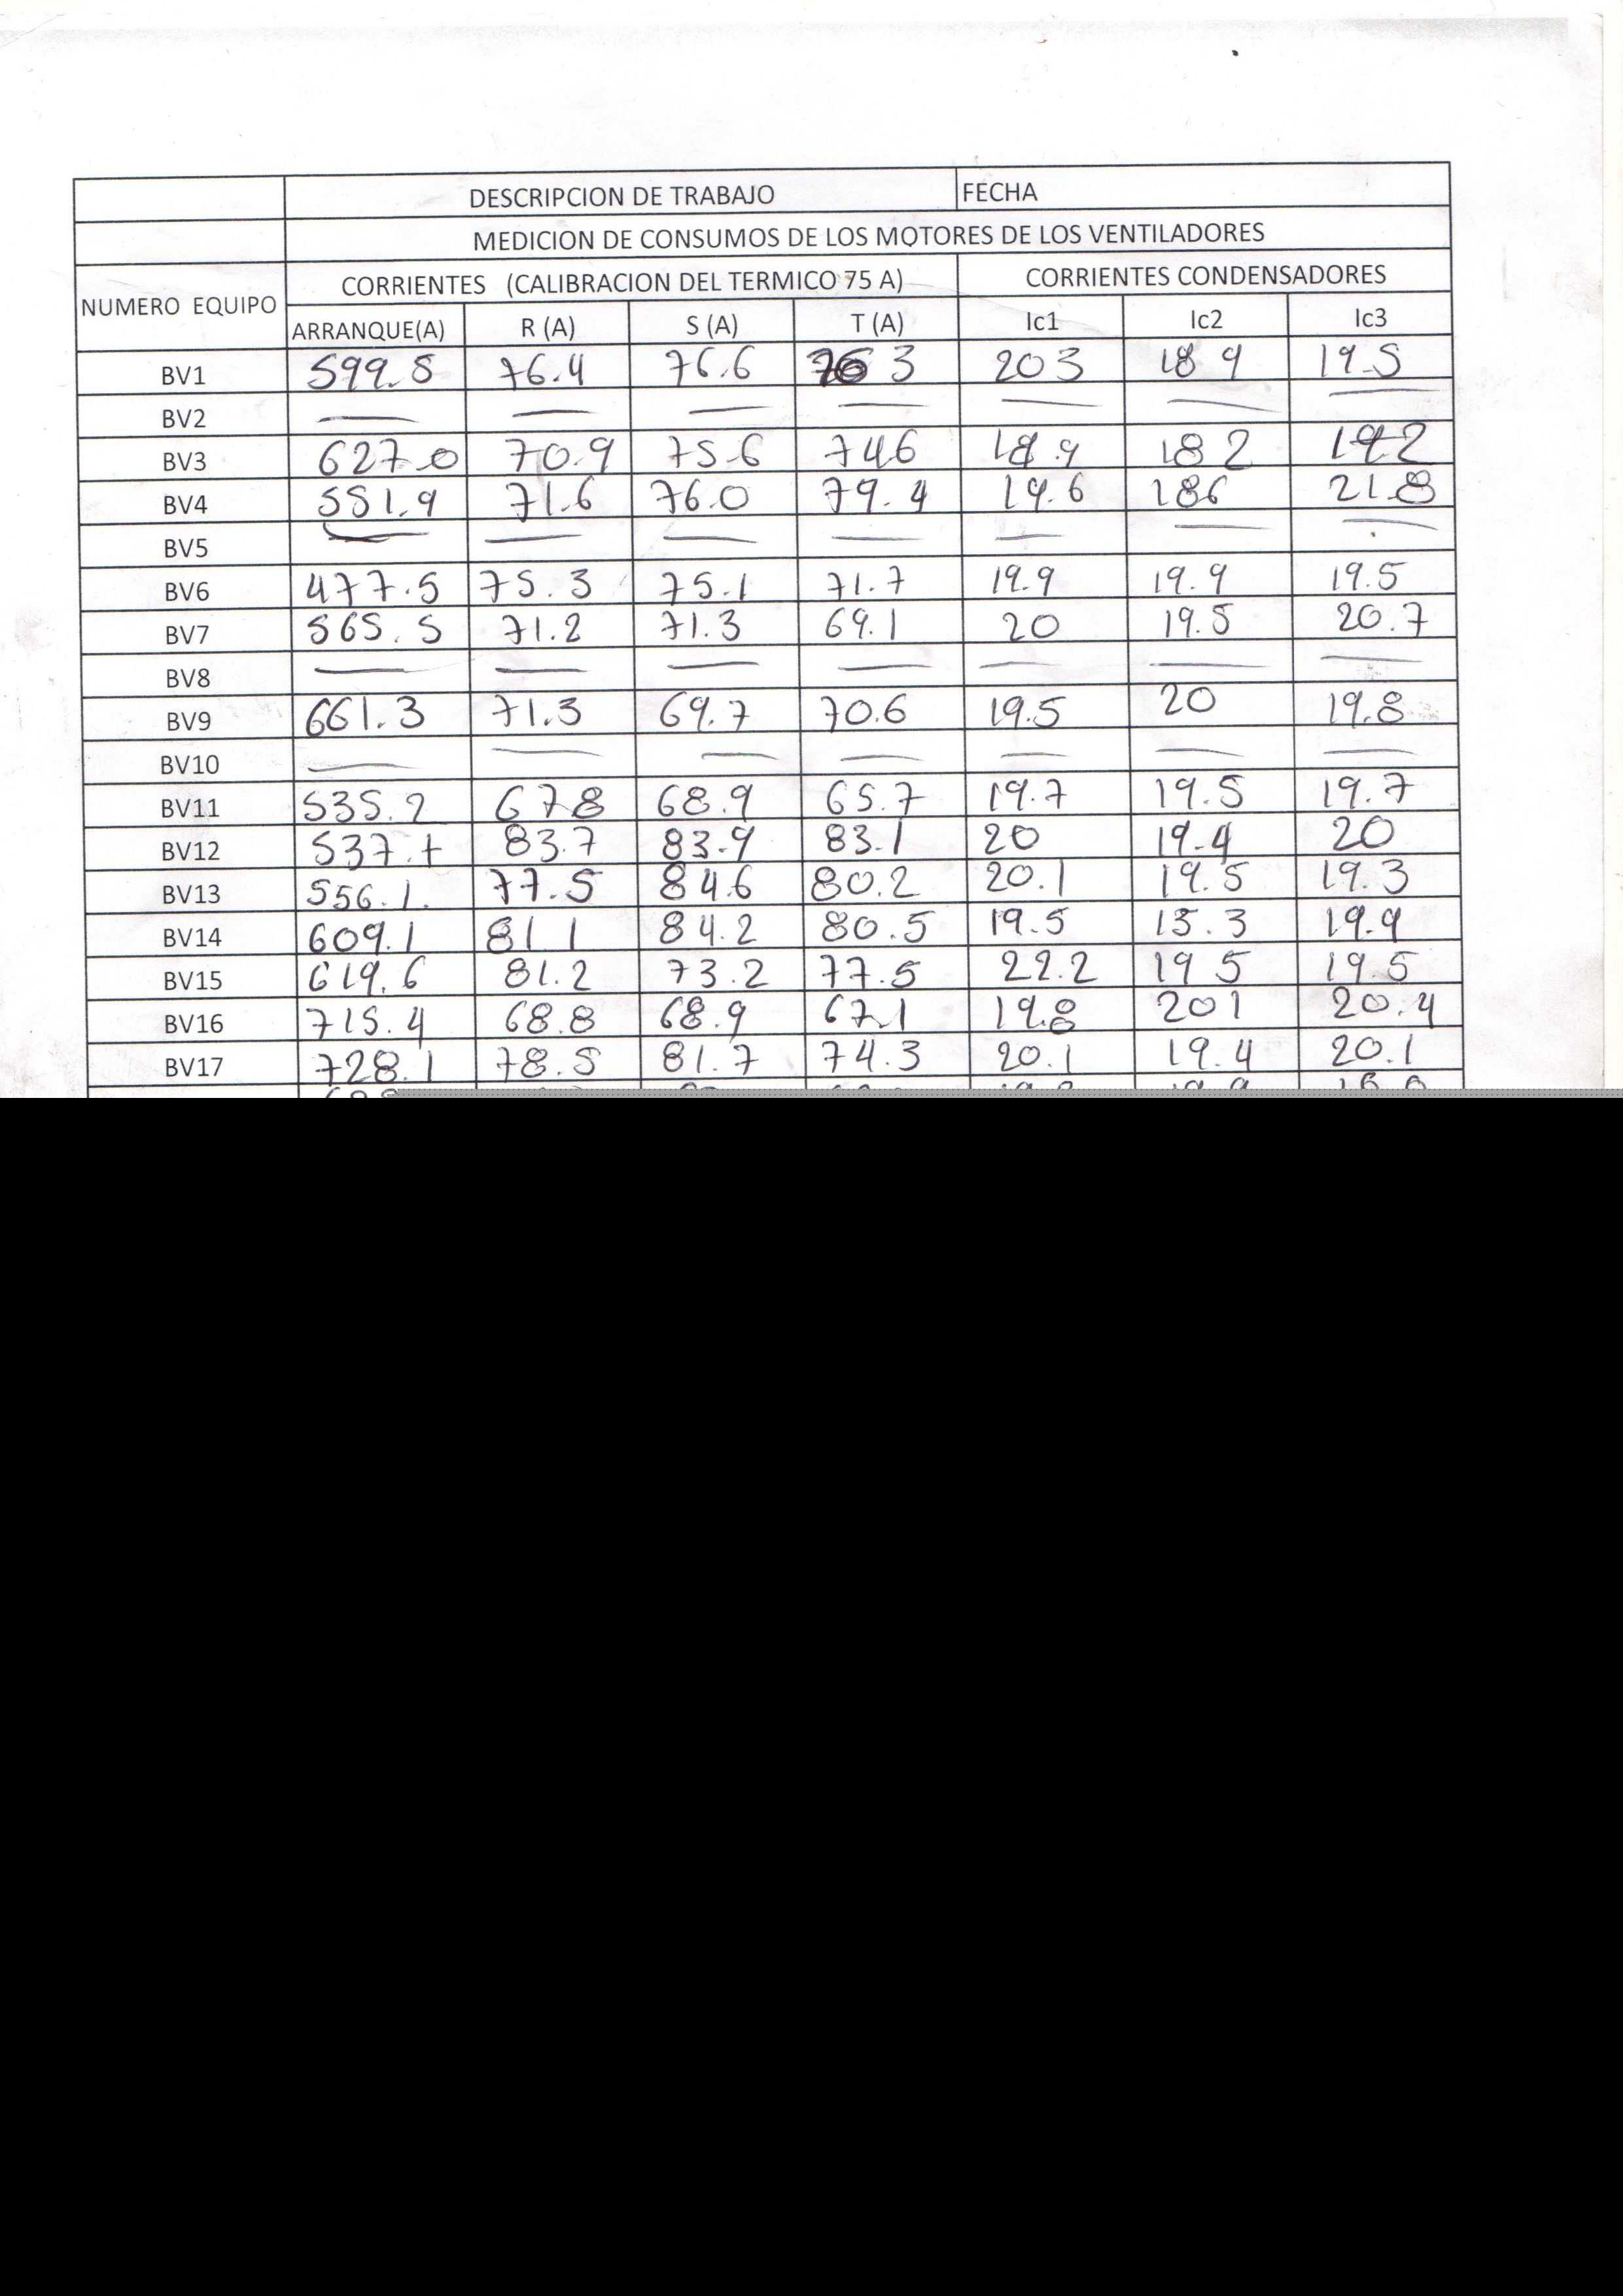 DESCRIPCION DE TRABAJO FECHA
MEDICION DE CONSUMOS DE LOS MOTORES DE LOS VENTILADORES
NUMERO EQUIPO CORRIENTES (CALIBRACION DEL TERMICO 75 A) CORRIENTES CONDENSADORES
ARRANQUE(A) R (A) S (A) T (A) Ic1 Ic2 Ic3
BV1 599.5 76.4 76.6 76 3 203 18 9 19.5
BV2 — — — — — — —
BV3 627.0 70.9 75.6 746 18.9 182 19.2
BV4 551.9 71.6 76.0 79.4 19.6 186 21.8
BV5 — — — — — — —
BV6 477.5 75.3 75.1 71.7 19.9 19.9 19.5
BV7 565.5 71.2 71.3 69.1 20 19.5 20.7
BV8 — — — — — — —
BV9 661.3 71.3 69.7 70.6 19.5 20 19.8
BV10 — — — — — — —
BV11 535.2 678 68.9 65.7 19.7 19.5 19.7
BV12 537.7 83.7 83.9 83.1 20 19.4 20
BV13 556.1. 77.5 84.6 80.2 20.1 19.5 19.3
BV14 609.1 81 1 84.2 80.5 19.5 15.3 19.9
BV15 619.6 81.2 73.2 77.5 22.2 19 5 19.5
BV16 715.4 68.8 68.9 67.1 19.8 201 20.4
BV17 728.1 78.5 81.7 74.3 20.1 19.4 20.1